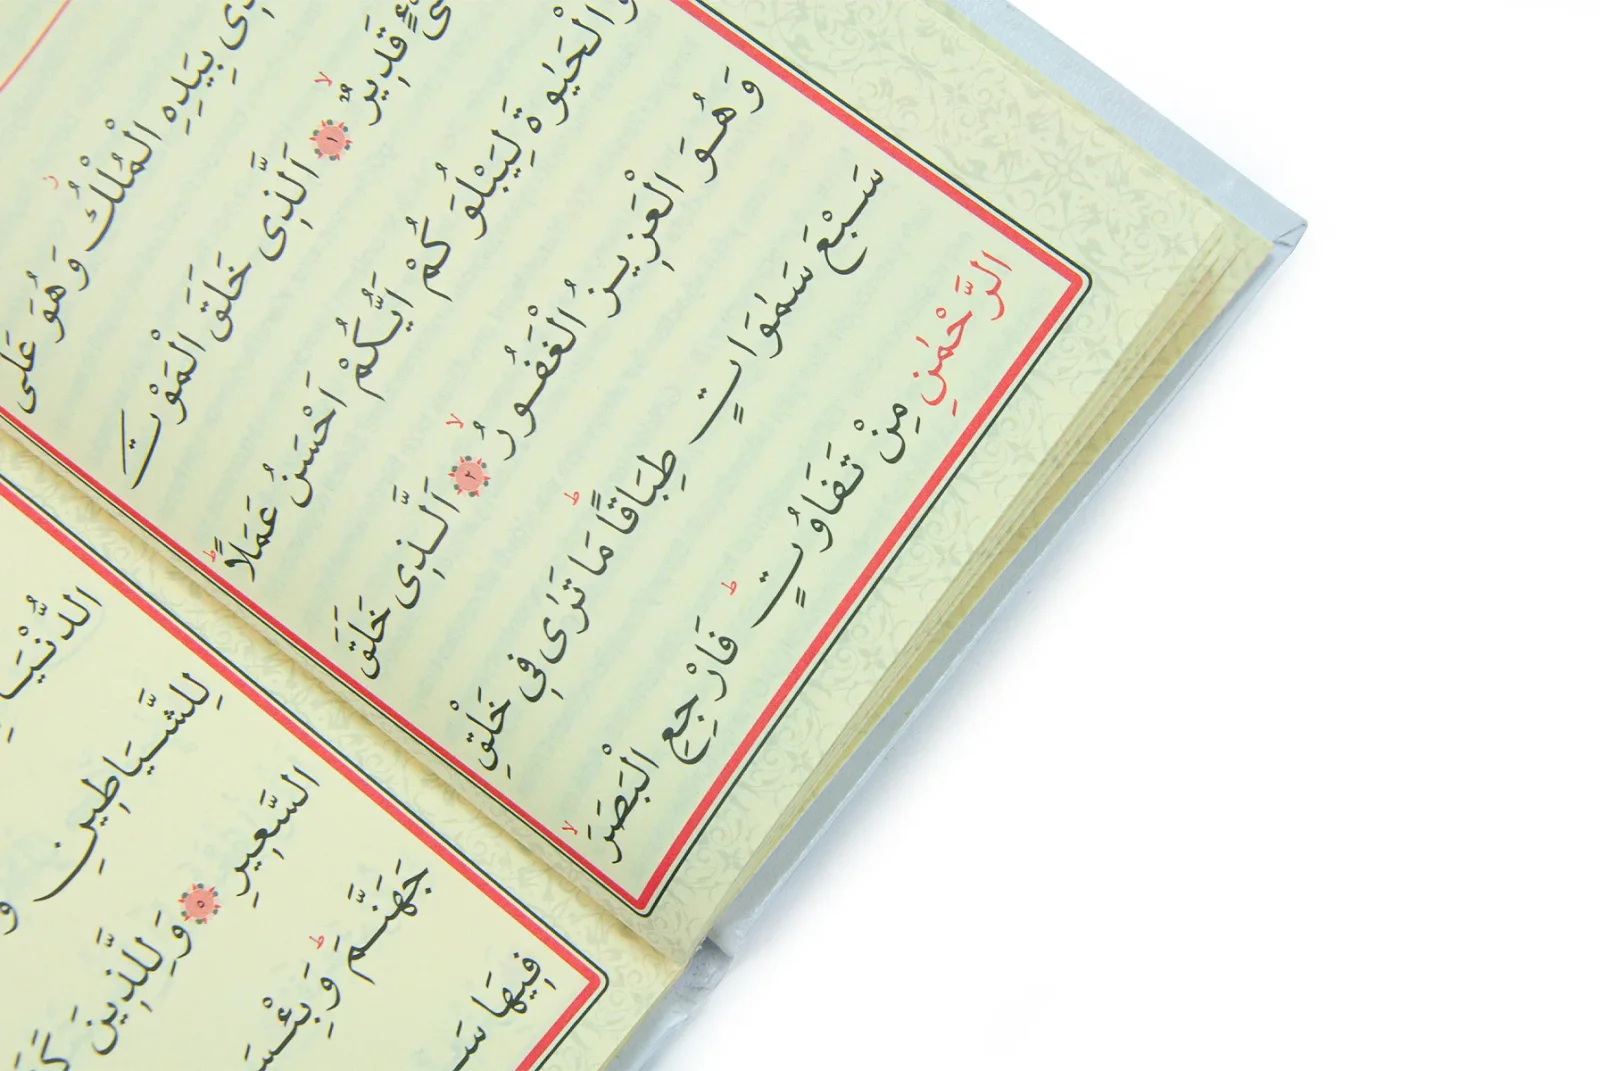 بِيَدِهِ الْمُلْكُ وَهُوَ عَلٰى
قَدِيرٌۙ ١ اَلَّذِى خَلَقَ الْمَوْتَ
وَالْحَيٰوةَ لِيَبْلُوَكُمْ اَيُّكُمْ اَحْسَنُ عَمَلًاؕ
وَهُوَ الْعَزِيزُ الْغَفُورُۙ ٢ اَلَّذِى خَلَقَ
سَبْعَ سَمٰوَاتٍ طِبَاقًاؕ مَا تَرٰى فِى خَلْقِ
الرَّحْمٰنِ مِنْ تَفَاوُتٍؕ فَارْجِعِ الْبَصَرَۙ
الدُّنْيَا
لِلشَّيَاطِينِ
السَّعِيرِ ٥ وَلِلَّذِينَ
جَهَنَّمَؕ وَبِئْسَ
فِيهَا